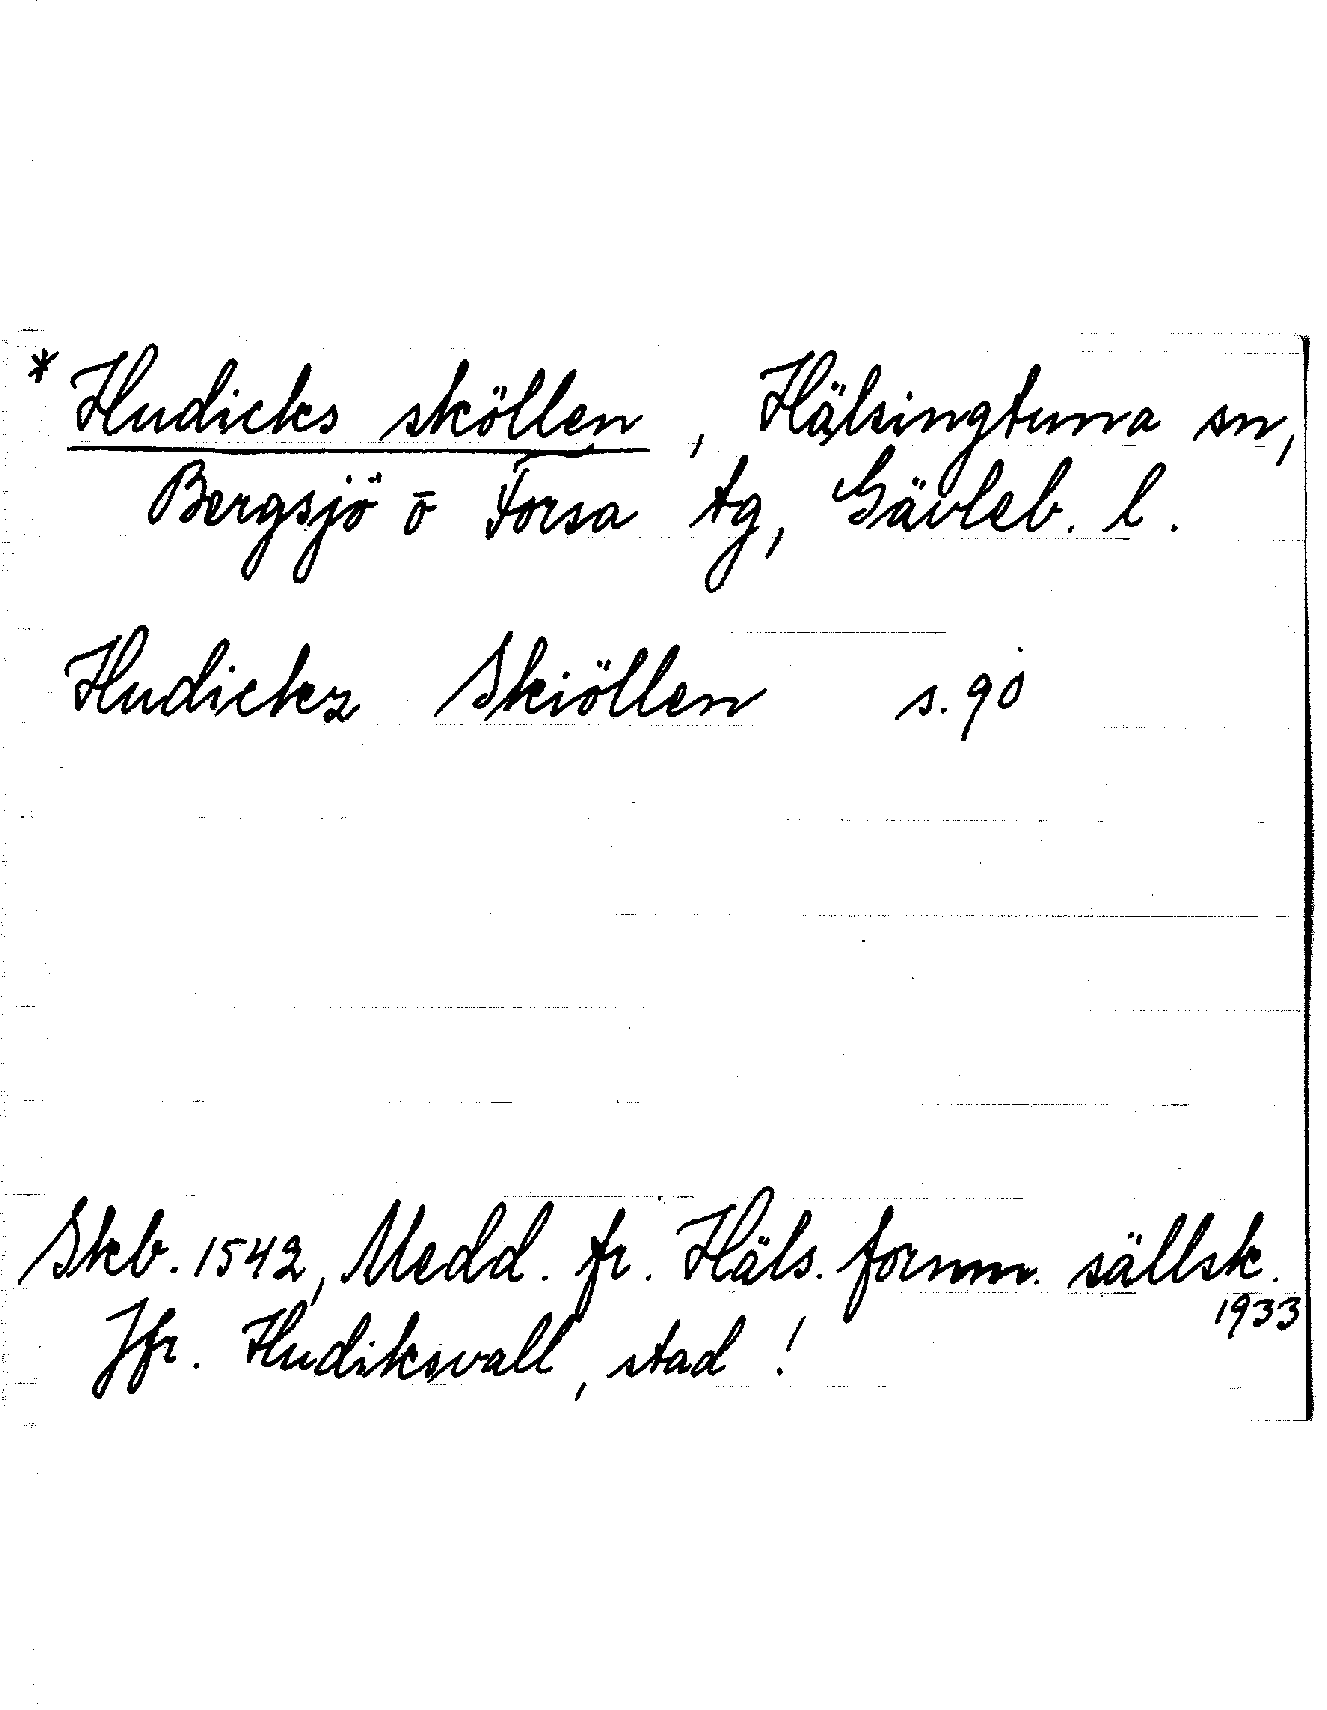 * Hudicks sköllen, Hälsingtuna sn,
Bergsjö o Forsa tg, Gävleb. l.
Hudickz Skiöllen s. 90
Skb. 1542, Medd. fr. Häls. fornm. sällsk.
1933
Jfr. Hudiksvall, stad!